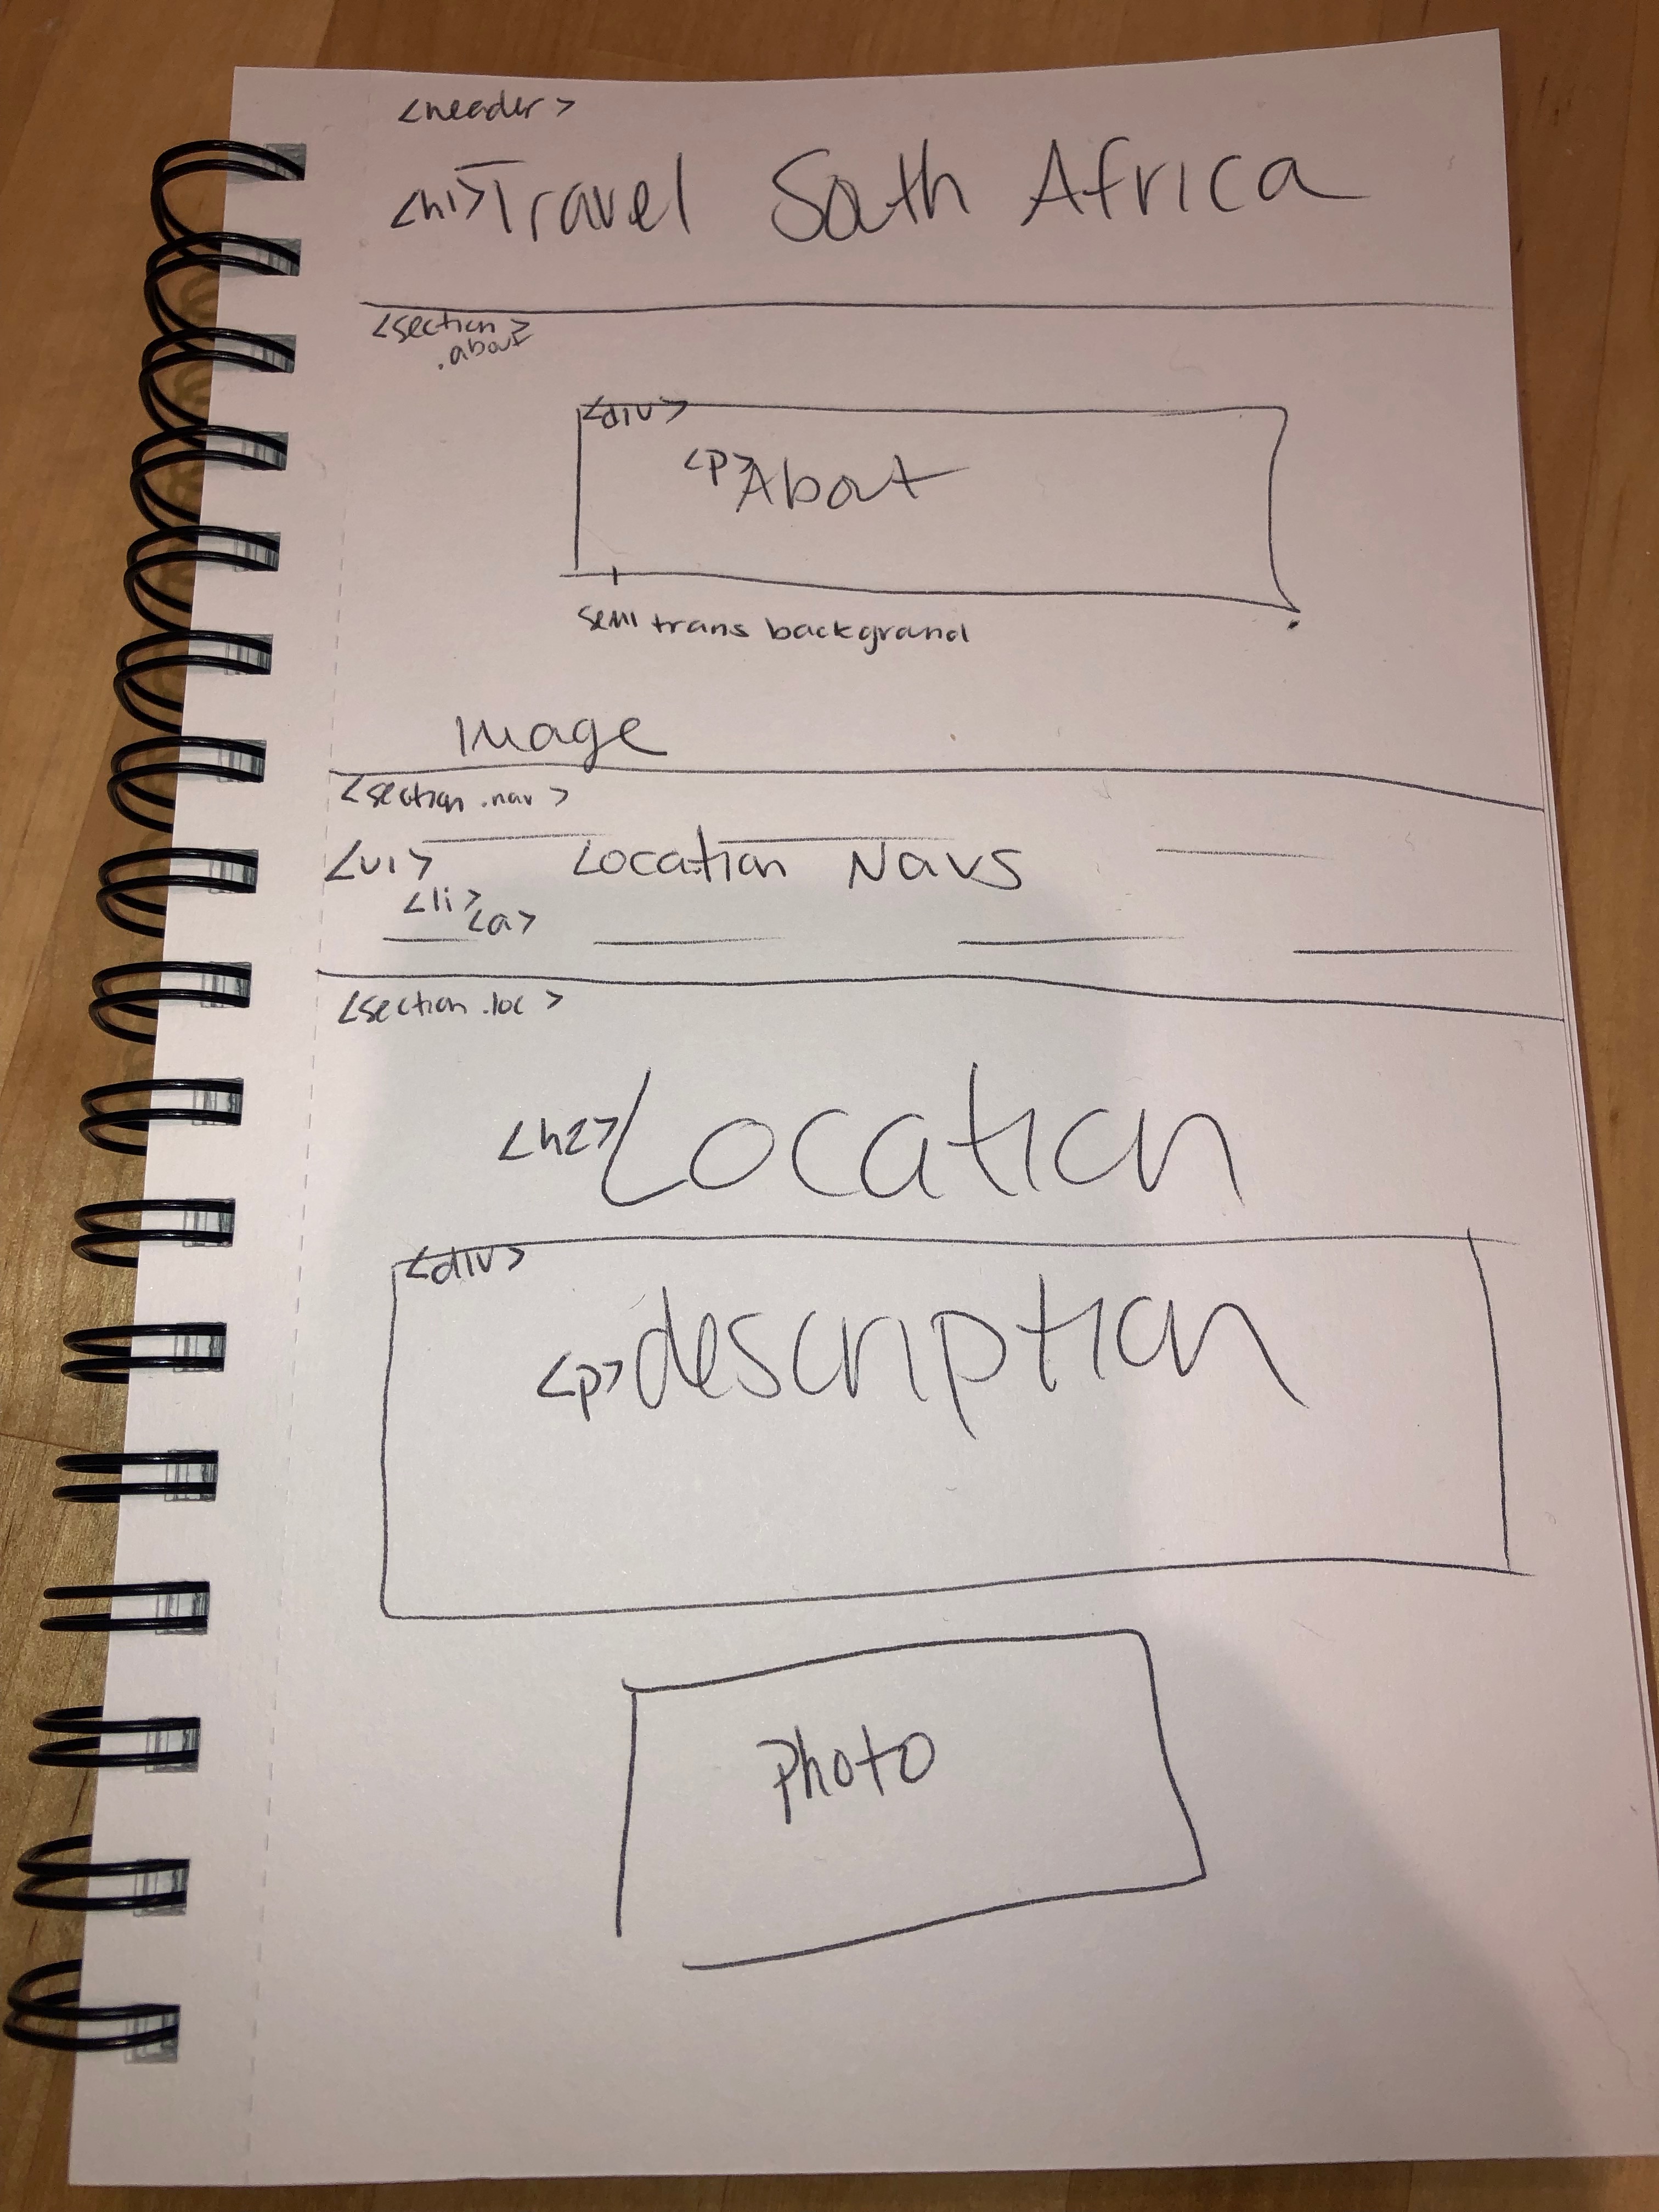 <header>
<h1>Travel South Africa
<section>
.about
<div>
<p>About
semi trans background
Image
<section .nav>
<ul> Location Navs
<li>
<a>
<section .loc>
<h2>Location
<div>
<p>description
Photo